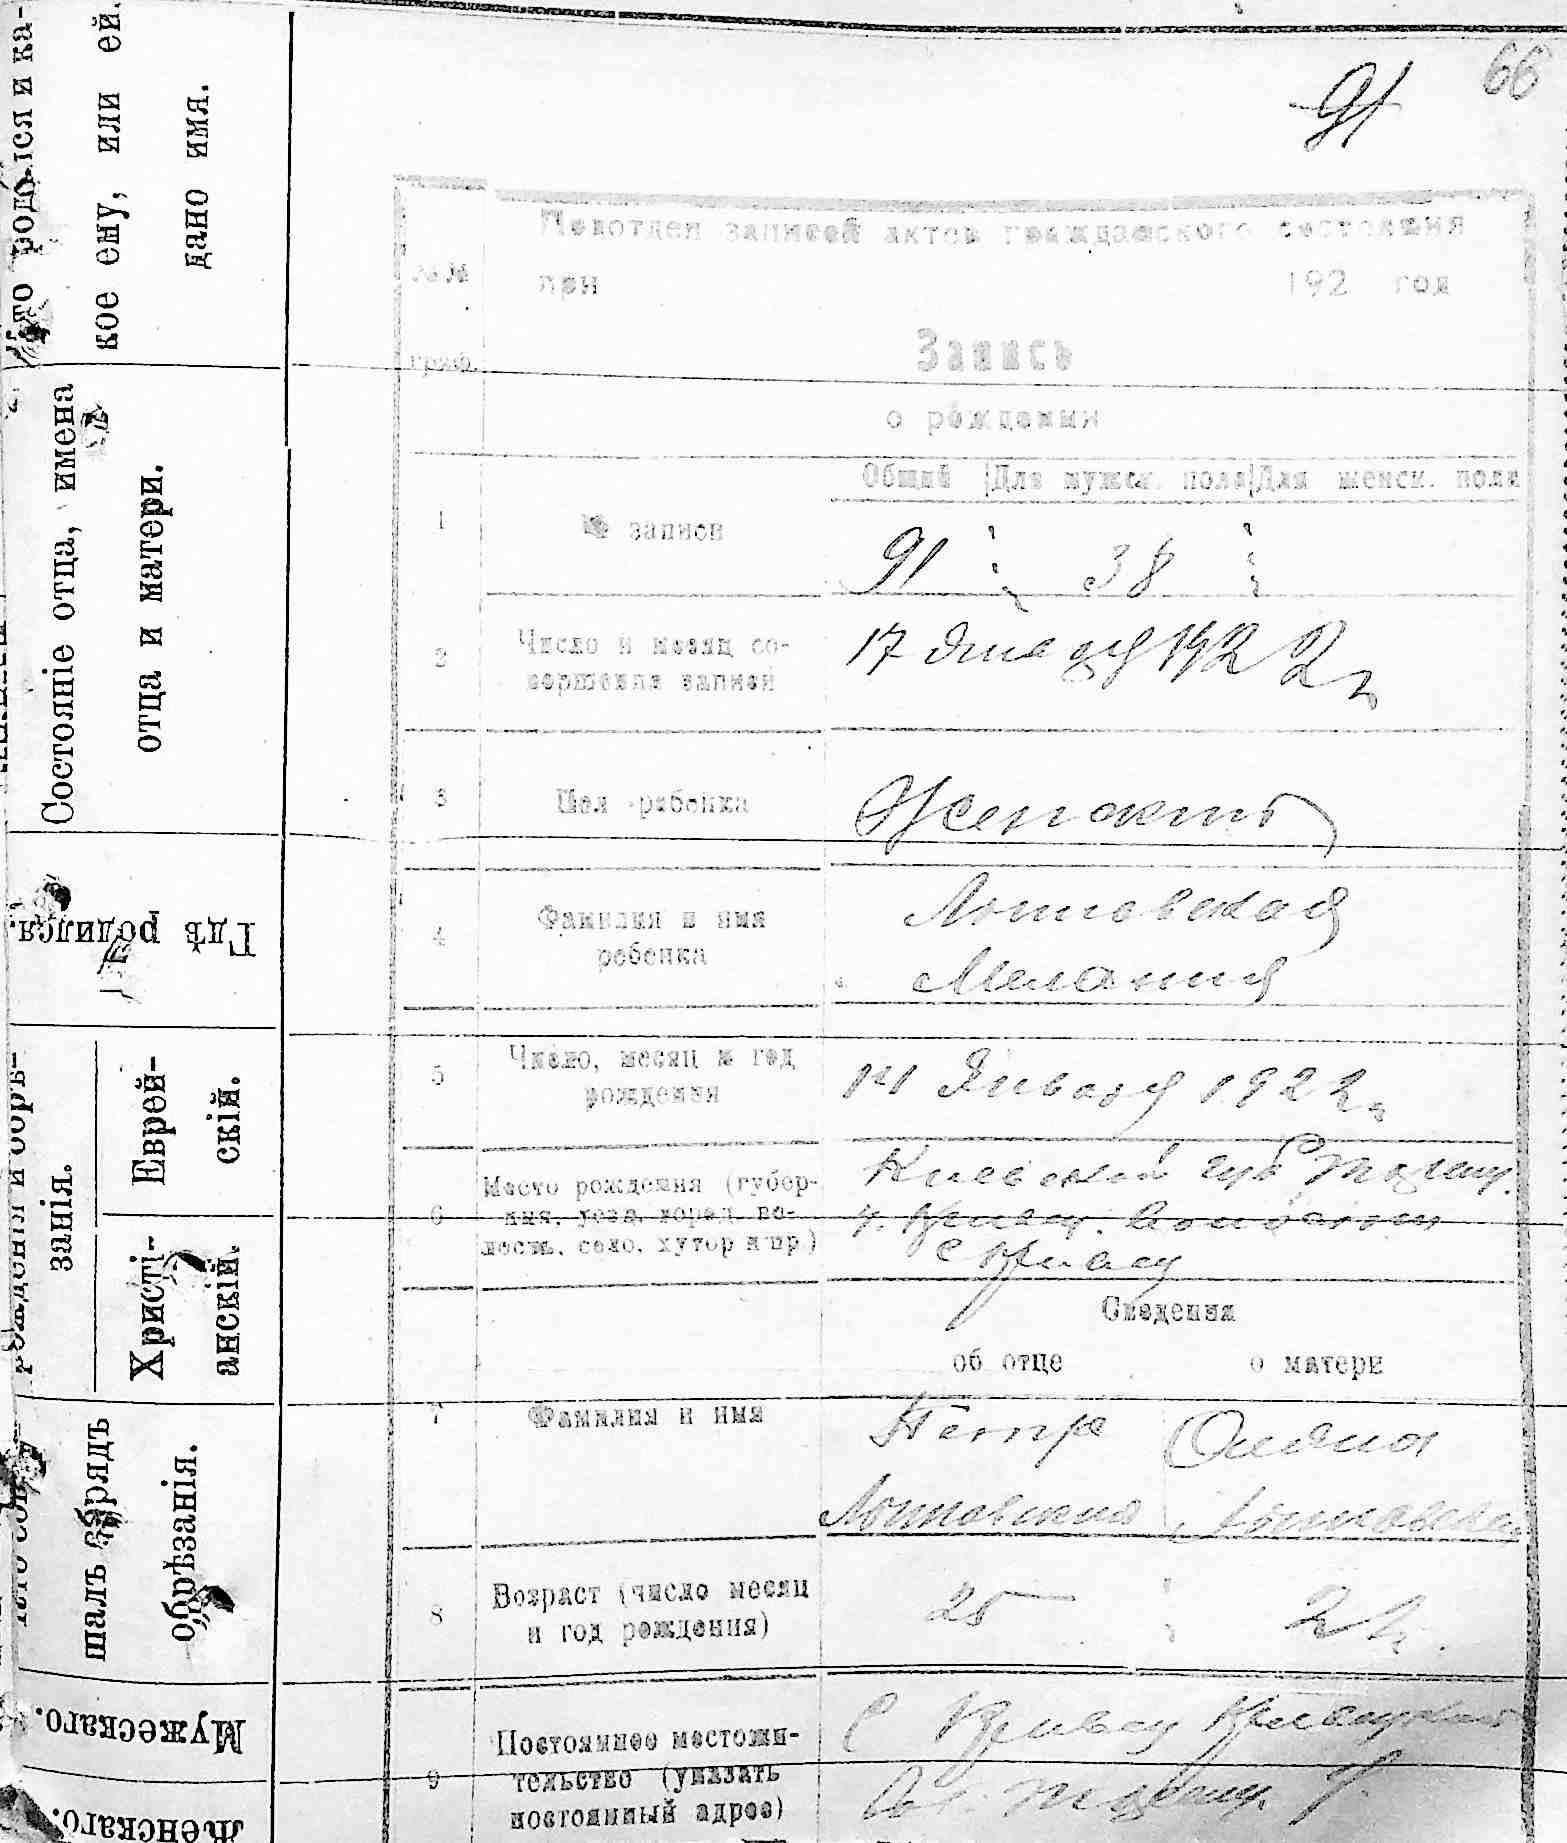 66
91
дано имя.
кое ему, или ей,
то родился и ка-
Подотдел записей актов гражданского состояния
№№
при 192 год
граф.
Запись
о рождении
Состояніе отца, имена
отца и матери.
Общий Для мужск. пола Для женск. пола
1 № записи
91 38
2 Число и месяц со-
вершения записи
17 января 1922 г
3 Пол ребенка
Женский
Гдѣ родился.
4 Фамилия и имя
ребенка
Мелания
5 Число, месяц и год
рождения
14 Января 1922 г
рожденія и обрѣ-
занія.
Еврей-
скій.
Христі-
анскій.
6 Место рождения (губер-
ния, уезд, город, во-
лость, село, хутор и пр.)
Киевской губ
с Кривец
Сведения
об отце о матери
7 Фамилия и имя
Петр
шалъ обрядъ
обрѣзанія.
8 Возраст (число месяц
и год рождения)
25
Мужескаго.
Женскаго.
9 Постоянное местожи-
тельство (указать
постоянный адрес)
С Кривец